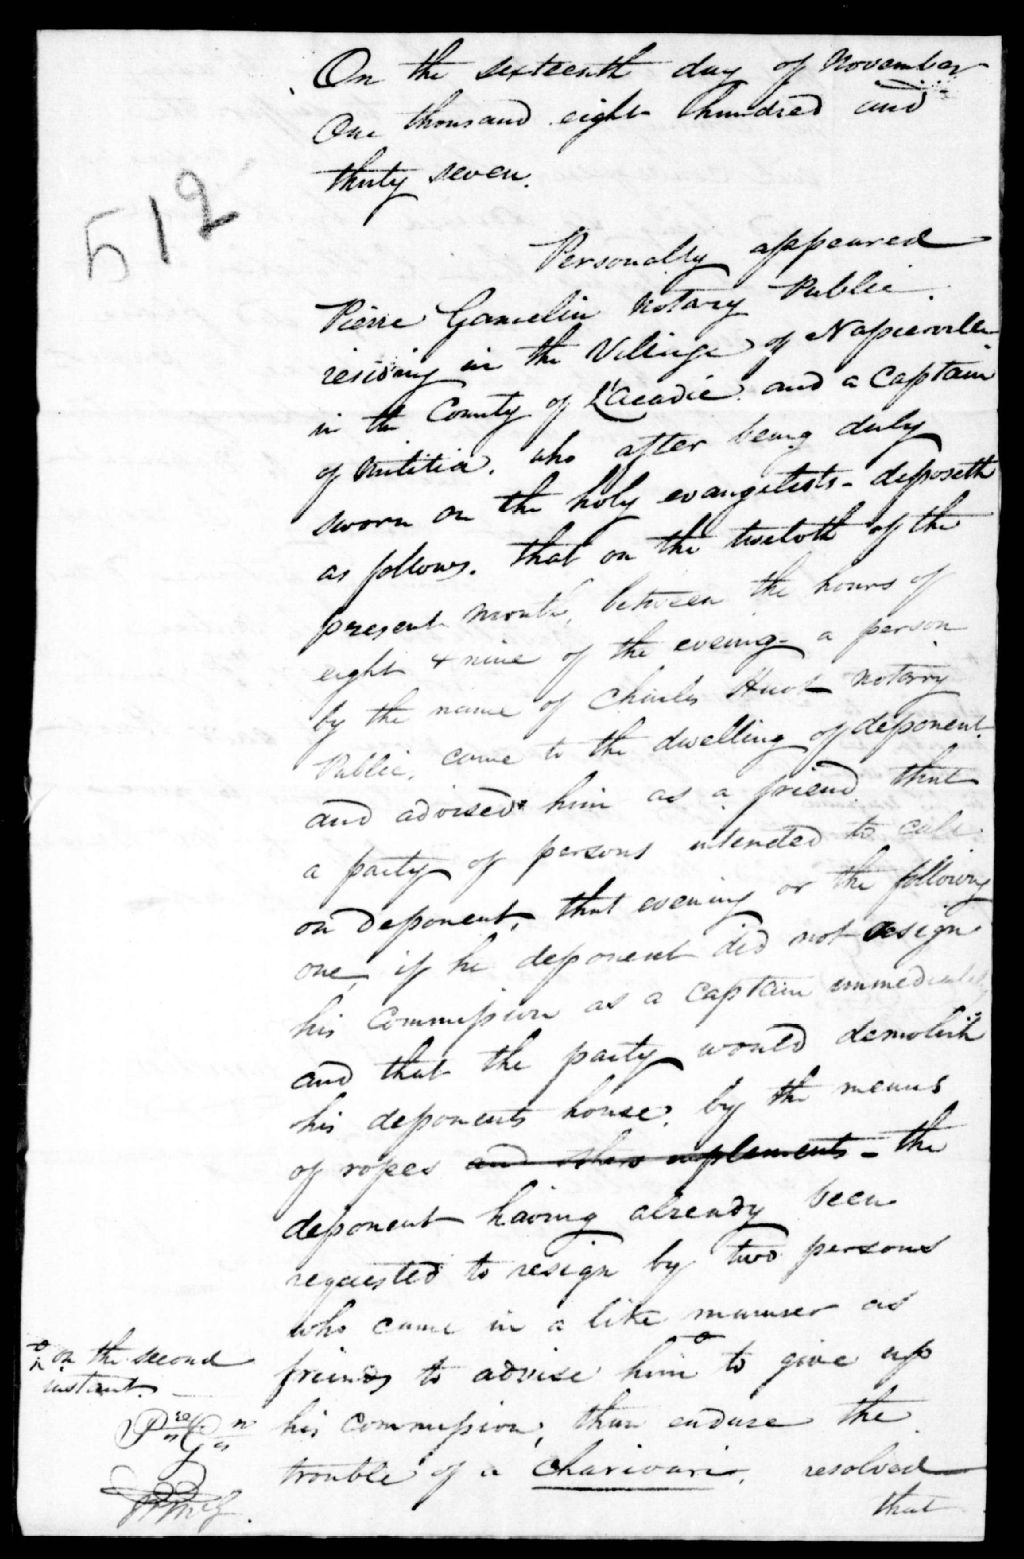 On the sixteenth day of November
One thousand eight hundred and
thirty seven.
512
Personally appeared
Pierre Gamelin Notary Public
residing in the Village of Napierville
in the County of L'acadie. and a Captain
of Militia. who after being duly
sworn on the holy evangelists - deposeth
as follows. that on the twelvth of the
present month, between the hours of
eight & nine of the evening - a person
by the name of Charles Huot Notary
Public. came to the dwelling of deponent
and advised him as a friend that
a party of persons intended to call
on deponent, that evening or the following
one, if he deponent did not resign
his Commission as a Captain immediately
and that the party would demolish
his deponents house. by the means
of ropes and other implements - the
deponent having already been
requested to resign by two persons
who came in a like manner as
friends to advise him to give up
his Commission, than endure the
trouble of a charivari. resolved
that
on the second
instant.